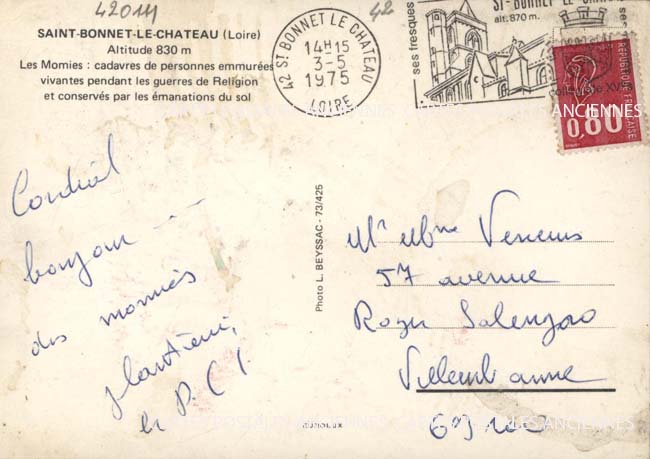 42011
42
SAINT-BONNET-LE-CHATEAU (Loire)
Altitude 830 m
Les Momies : cadavres de personnes emmurées
vivantes pendant les guerres de Religion
et conservés par les émanations du sol
42 ST BONNET LE CHATEAU
14H15
3-5
1975
LOIRE
ST-BONNET LE CHATEAU
alt. 870 m.
ses fresques
ses
collégiale XV
REPUBLIQUE FRANÇAISE
0,60
ANCIENNES
Cordial
bonjour
des momies
Photo L. BEYSSAC - 73/425
Mr Mme
57 avenue
Roger Salengro
Villeurbanne
CARTES POSTALES ANCIENNES